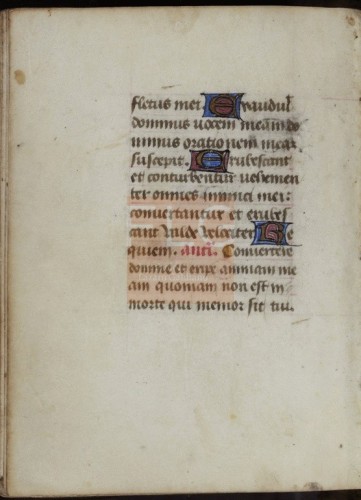 fletus mei. Exaudiuit
dominus uocem meam do
minus orationem meam
suscepit. Erubescant
et conturbentur uehemen
ter omnes inimici mei:
conuertantur et erubes
cant valde velociter. Re
quiem. anti. Conuertere
domine et eripe animam me
am quoniam non est in
morte qui memor sit tui.